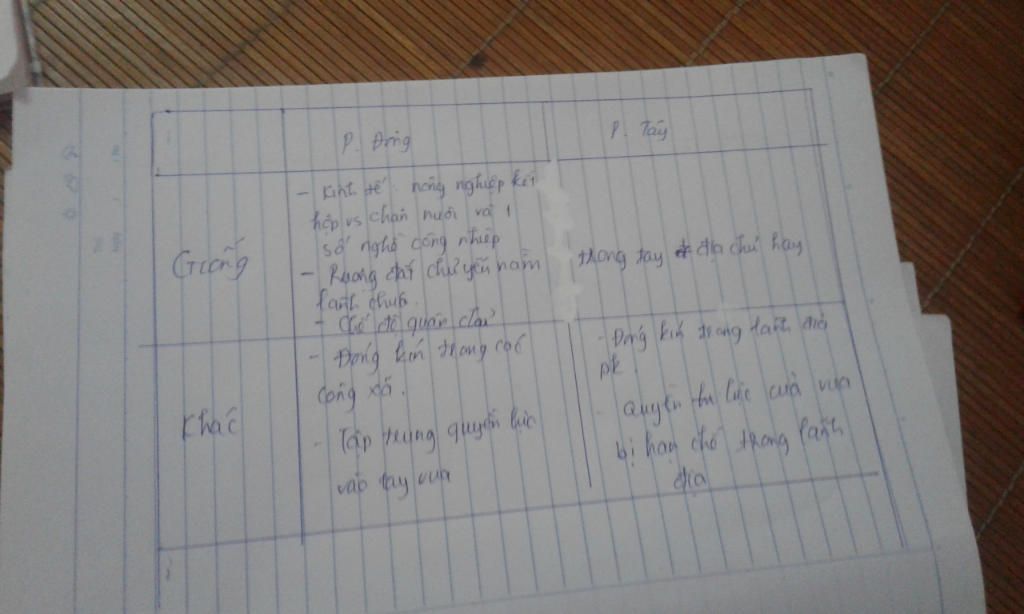 P. Đông
P. Tây
Giống
- Kinh tế: nông nghiệp kết
hợp vs chăn nuôi và 1
số nghề công nghiệp
- Ruộng đất chủ yếu nằm
trong tay địa chủ hay
lãnh chúa.
- Chế độ quân chủ
Khác
- Đóng kín trong các
công xã.
- Tập trung quyền lực
vào tay vua
- Đóng kín trong lãnh địa
pk.
- Quyền lực của vua
bị hạn chế trong lãnh
địa